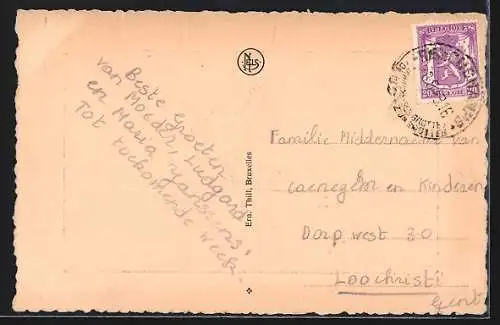 Beste Groeten
van Moeder, Ludgard
en Maria Janssens,
Tot toekomende week.
NELS
Ern. Thill, Bruxelles
BELGIQUE
20 20
BELGIE
Familie Middernacht van
Caenegem en Kinderen
Dorp west 30
Loochristi
Gent